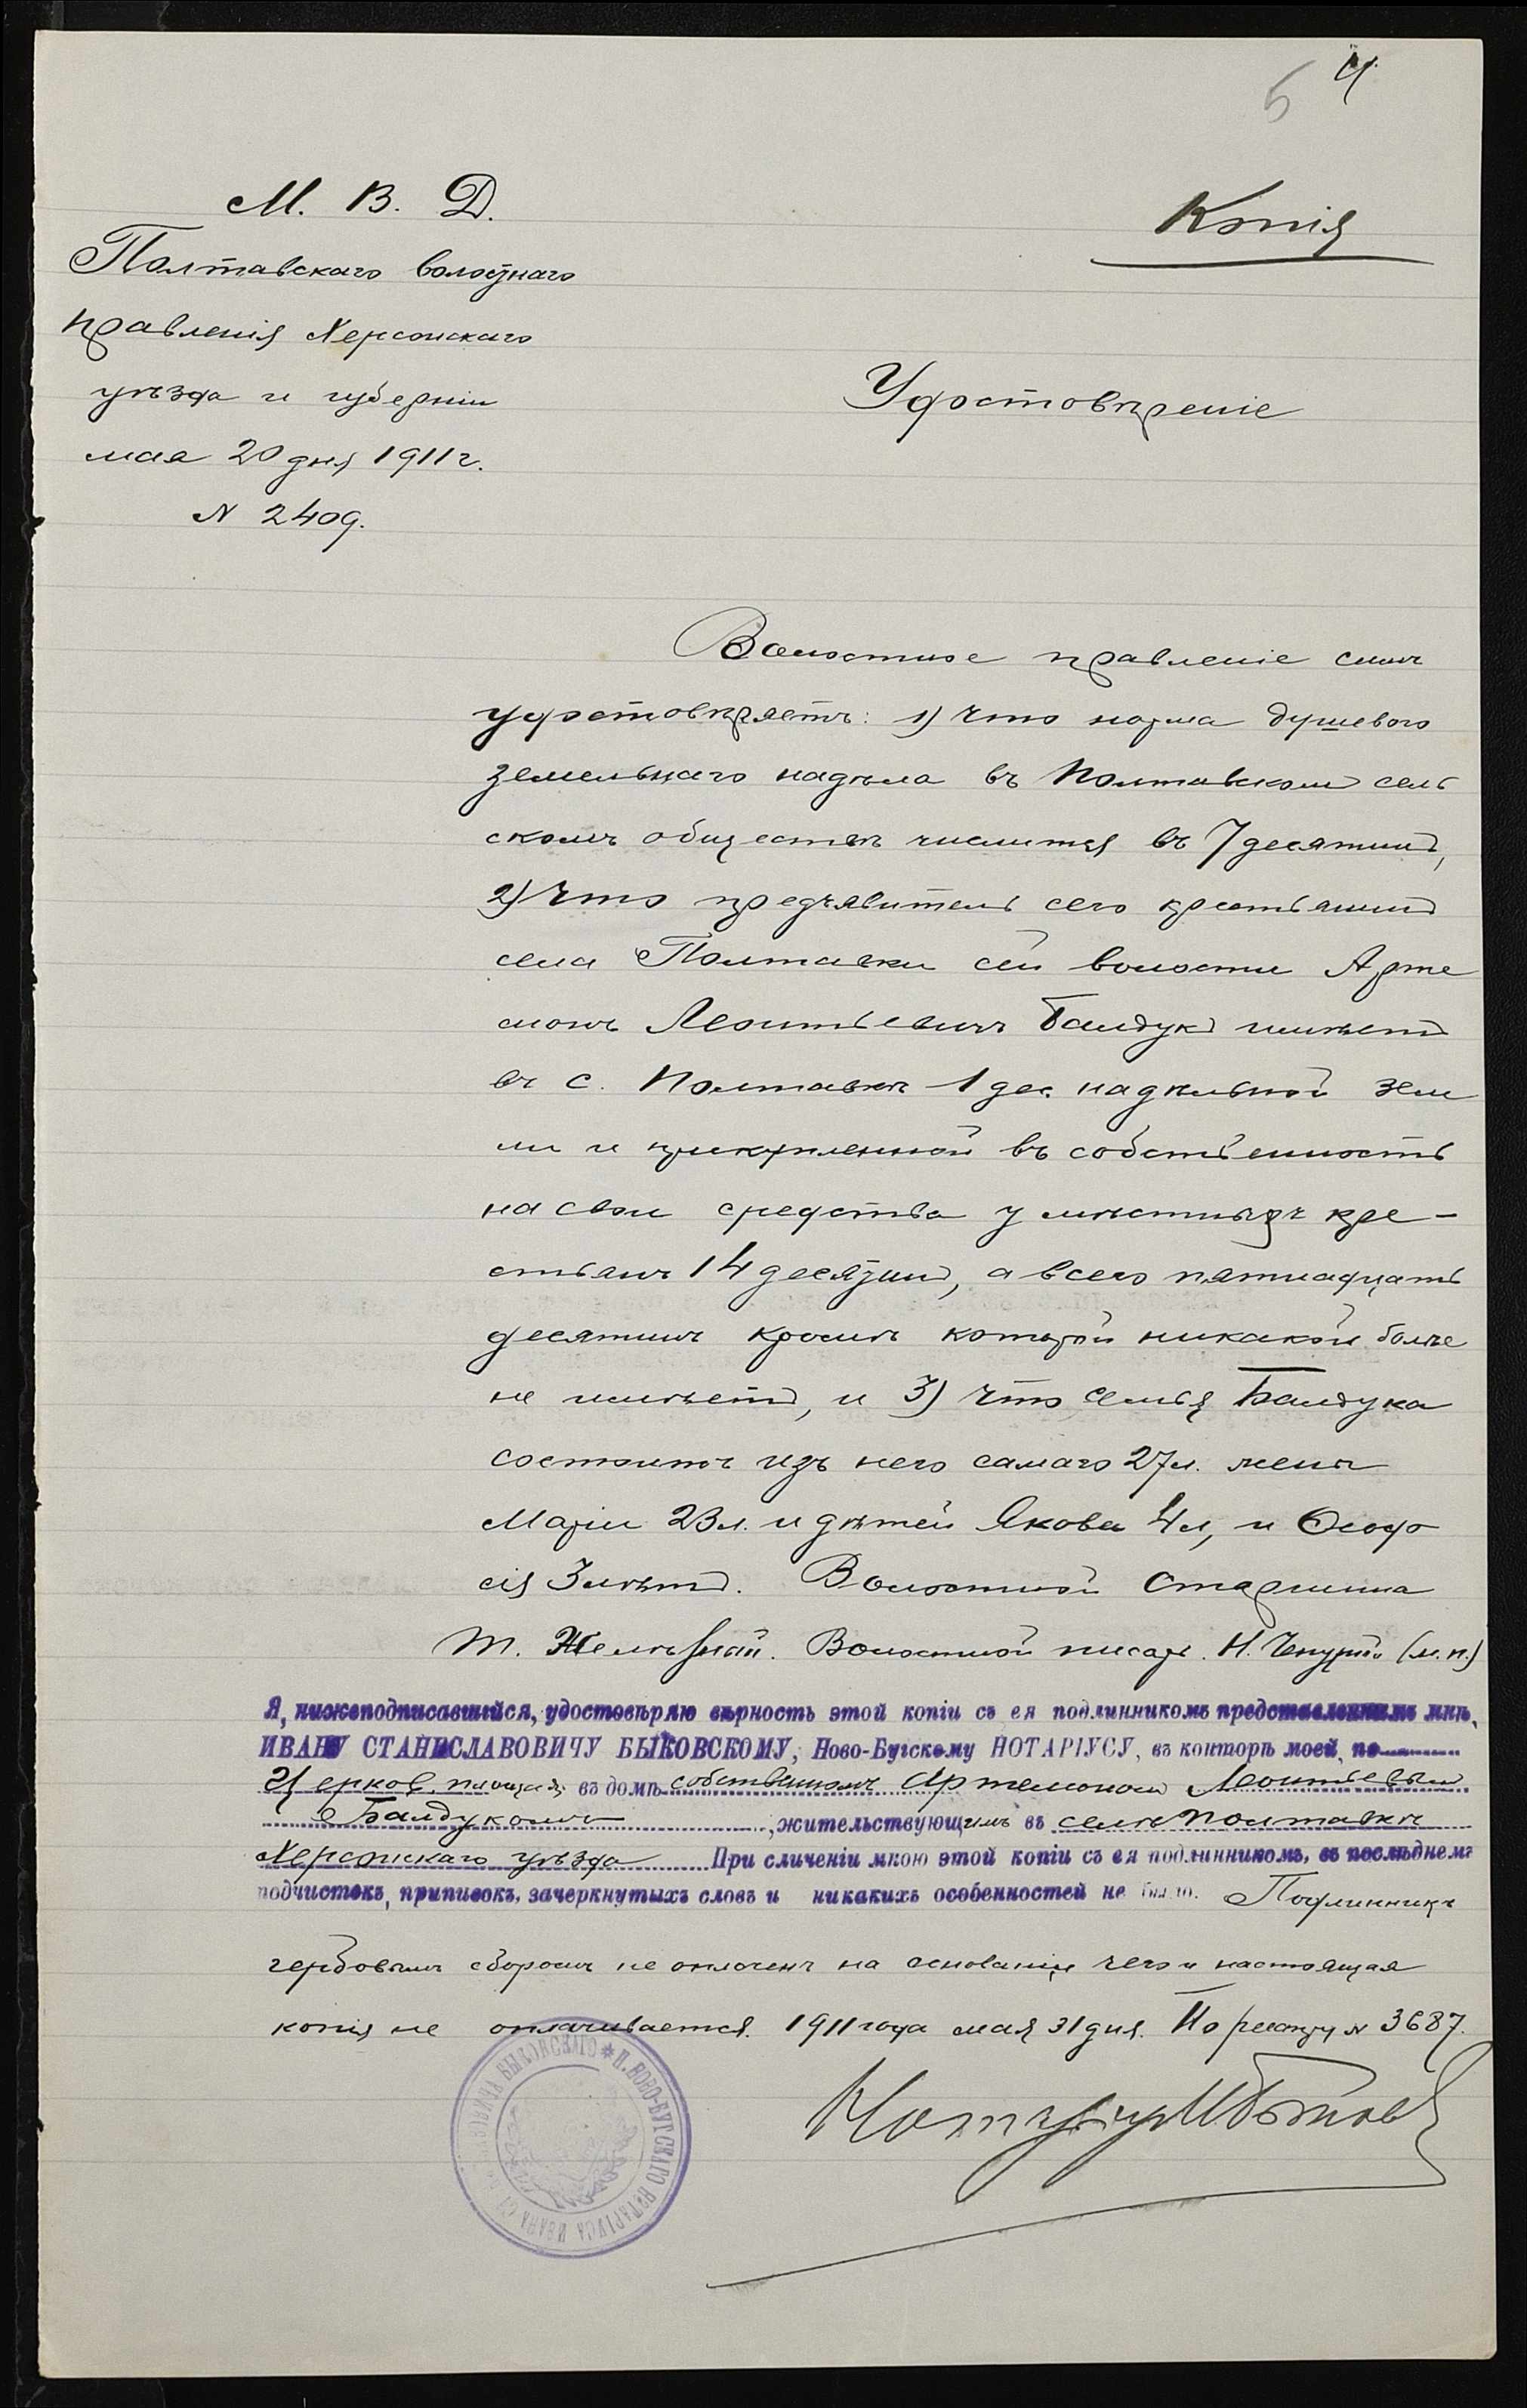 5 4.
М. В. Д.
Полтавскаго волостнаго
правленія Херсонскаго
уѣзда и губерніи
мая 20 дня 1911 г.
N 2409.
Копія
Удостовѣреніе
Волостное правленіе симъ
удостовѣряетъ: 1) что норма душевого
земельнаго надѣла въ Полтавскомъ сель
скомъ обществѣ числится въ 7 десятинъ,
2) что предъявитель сего крестьянинъ
села Полтавки сей волости Арте
монъ Леонтьевичъ Балдукъ имѣетъ
въ с. Полтавкѣ 1 дес. надѣльной зем
ли и прикупленной въ собственность
на свои средства у мѣстныхъ кре-
стьянъ 14 десятинъ, а всего пятнадцать
десятинъ кромѣ которой никакой болѣе
не имѣетъ, и 3) что семья Балдука
состоитъ изъ него самаго 27 л. жены
Маріи 23 л. и дѣтей Якова 4 л, и Ѳеодо
сія 3 лѣтъ. Волостной Старшина
Т. Желѣзный. Волостной писарь. Н. Чепурной (м. п.)
Я, нижеподписавшійся, удостовѣряю вѣрность этой копіи съ ея подлинникомъ представленнымъ мнѣ,
ИВАНУ СТАНИСЛАВОВИЧУ БЫКОВСКОМУ, Ново-Бугскому НОТАРІУСУ, въ конторѣ моей, по
Церков. площади, въ домѣ собственномъ Артемономъ Леонтьевым
Балдукомъ, жительствующимъ въ селѣ Полтавкѣ
Херсонскаго уѣзда При сличеніи мною этой копіи съ ея подлинникомъ, въ послѣднемъ
подчистокъ, приписокъ, зачеркнутыхъ словъ и никакихъ особенностей не было. Подлинникъ
гербовымъ сборомъ не оплоченъ на основаніи чего и настоящая
копія не оплачивается. 1911 года мая 31 дня. По реестру N 3687.
Нотаріусъ И Быковск
* Н. НОВО-БУГСКАГО НОТАРІУСА ИВАНА СТАНИСЛАВОВИЧА БЫКОВСКАГО